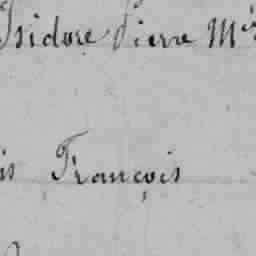 Isidore Pierre M
is François